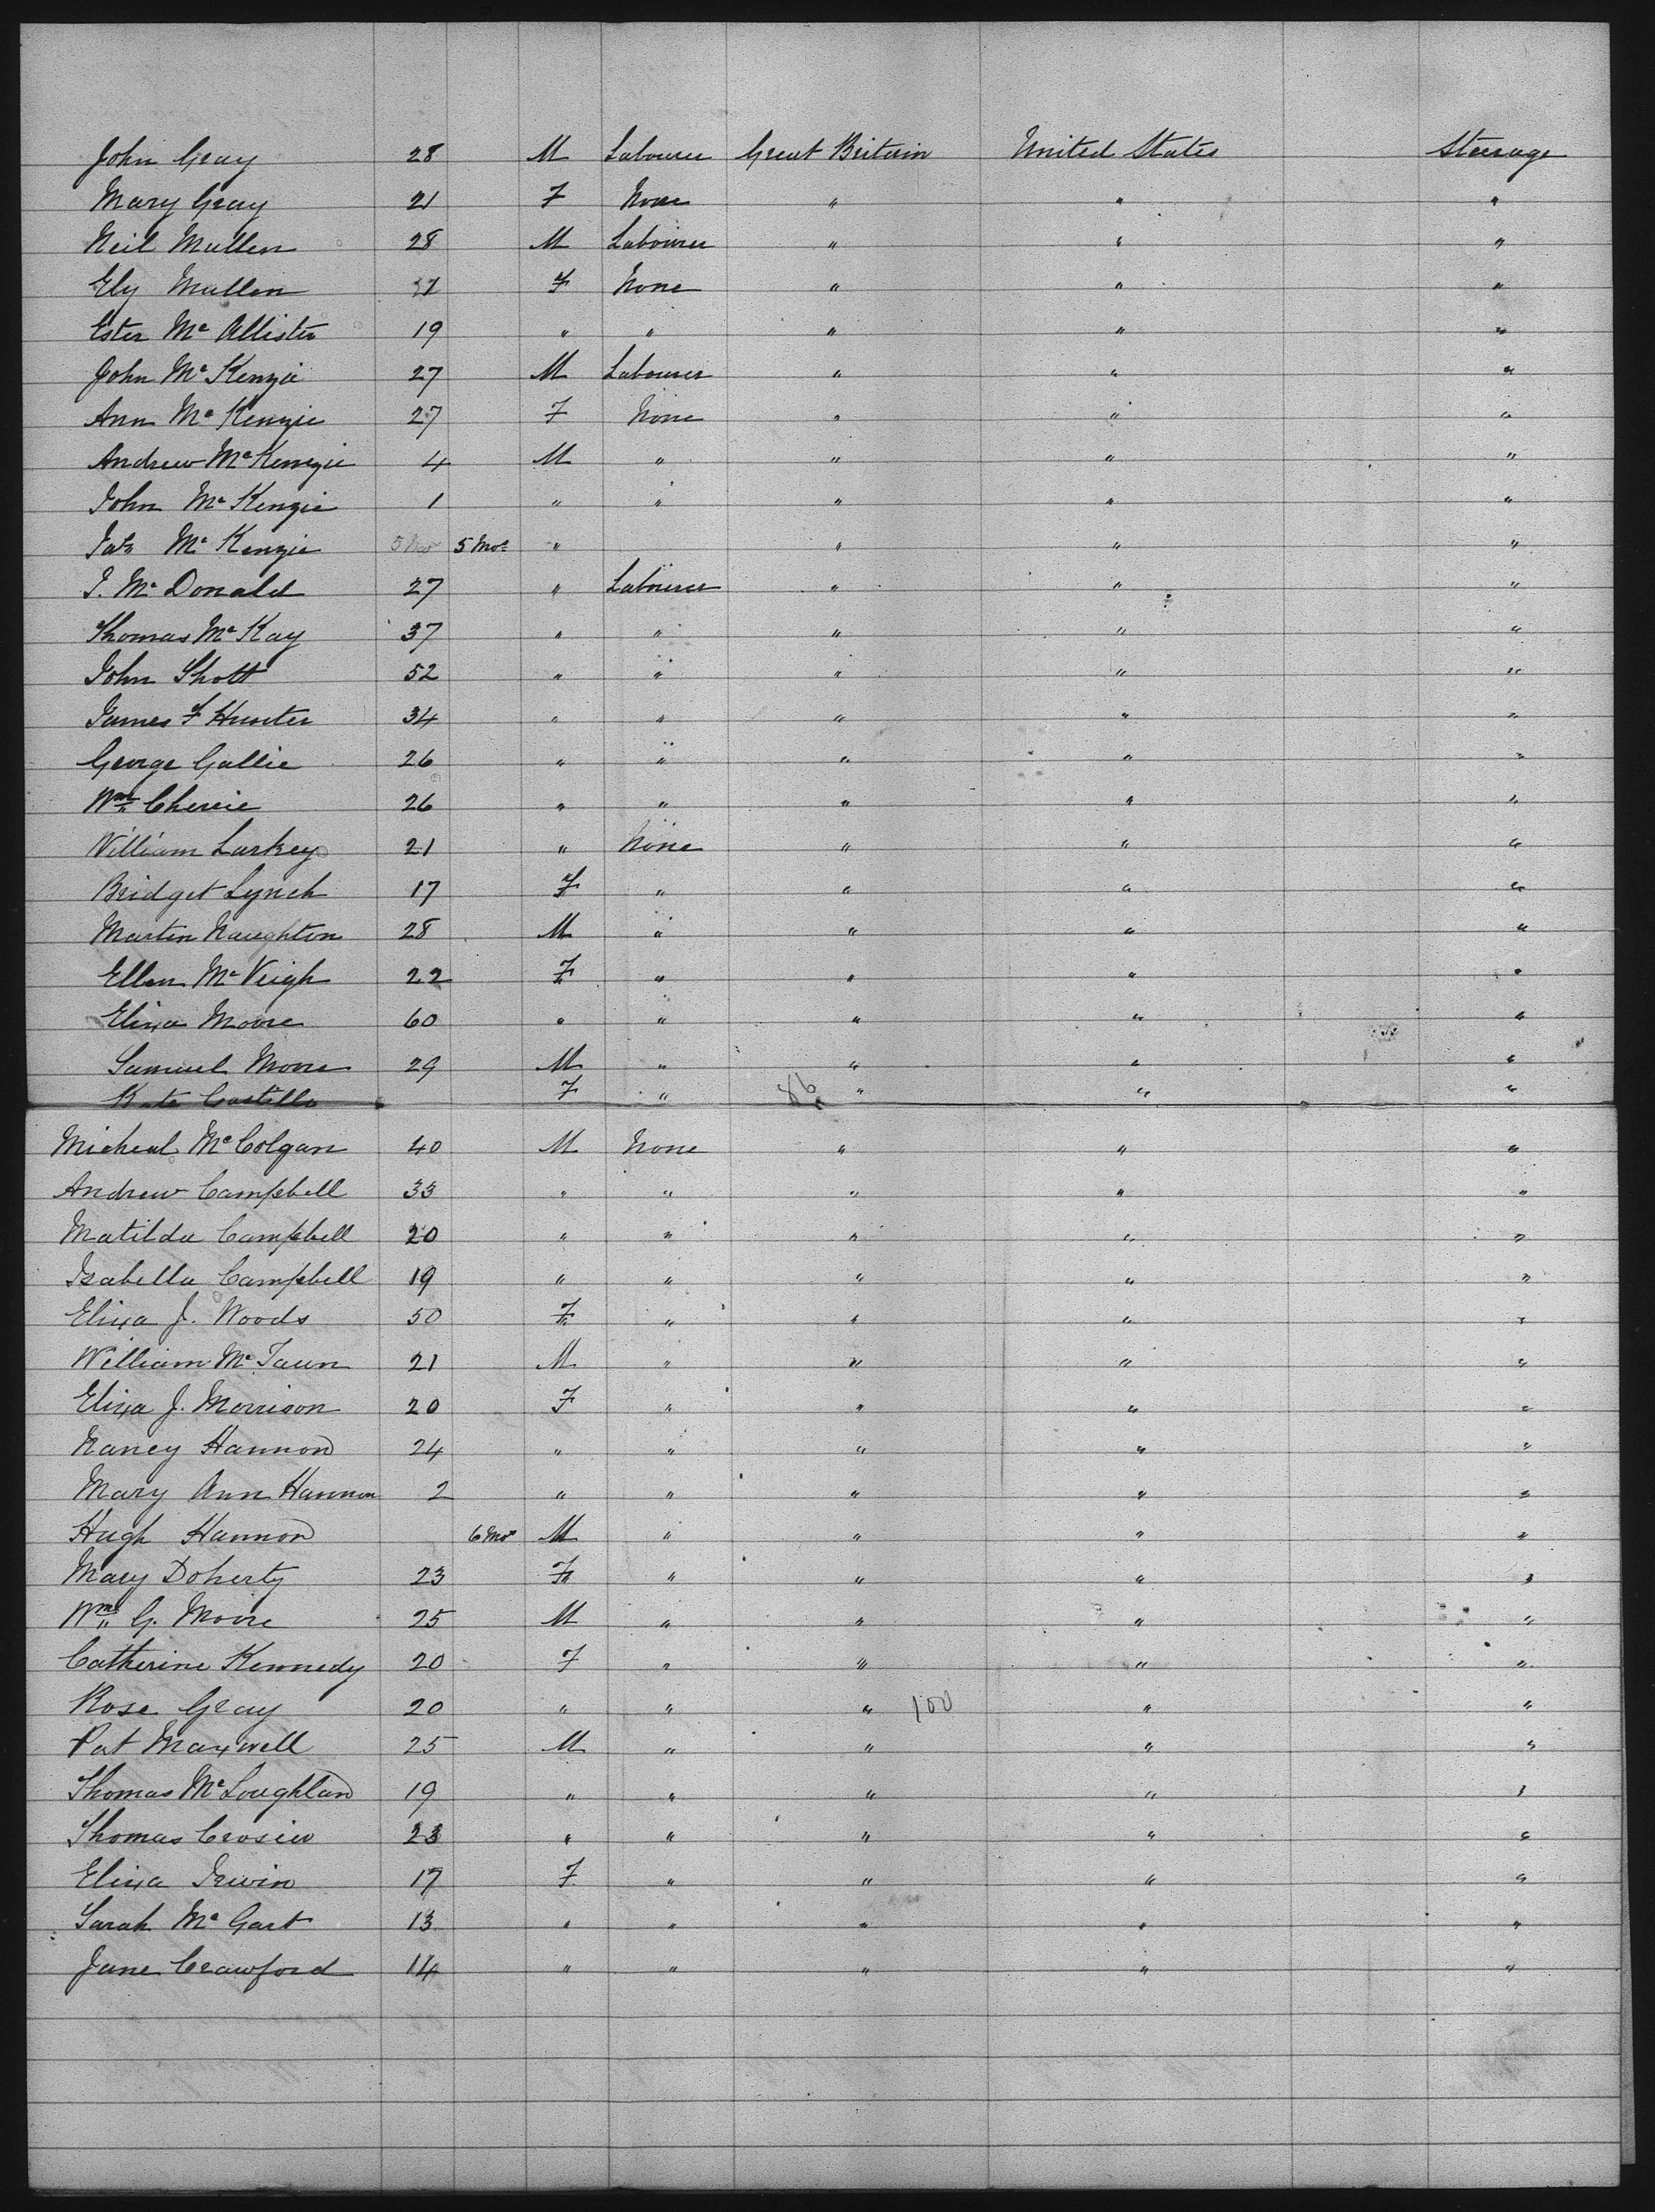 John Gray 28 M Labourer Great Britain United States Steerage
Mary Gray 21 F None " " "
Neil Mullen 28 M Labourer " " "
Ely Mullen F None " " "
Ester Mc Allister 19 " " " " "
John Mc Kenzie 27 M Labourer " " "
Ann Mc Kenzie 27 F None " " "
Andrew Mc Kenzie 4 M " " " "
John Mc Kenzie 1 " " " " "
Mc Kenzie 5 Mos 5 Mos " " " "
J. Mc Donald 27 " Labourer " " "
Thomas Mc Kay 37 " " " " "
John Shott 52 " " " " "
James F Hunter 34 " " " " "
George Gallie 26 " " " " "
Wm 26 " " " " "
William Larkey 21 " None " " "
Bridget Lynch 17 F " " " "
Martin Naughton 28 M " " " "
Ellen Mc Veigh 22 F " " " "
Eliza Moore 60 " " " " "
Samuel Moore 29 M " " " "
Kate Costillo F " 86 " " "
Micheal Mc Colgan 40 M None " " "
Andrew Campbell 33 " " " " "
Matilda Campbell 20 " " " " "
Isabella Campbell 19 " " " " "
Eliza J. Woods 50 F " " " "
William Mc 21 M " " " "
Eliza J. Morrison 20 F " " " "
Nancy Hannon 24 " " " " "
Mary Ann Hannon 2 " " " " "
Hugh Hannon 6 Mos M " " " "
Mary Doherty 23 F " " " "
Wm G. Moore 25 M " " " "
Catherine Kennedy 20 F " " " "
Rose Gray 20 " " " 100 " "
Pat Maxwell 25 M " " " "
Thomas Mc Loughlan 19 " " " " "
Thomas Crosier 23 " " " " "
Eliza Irwin 17 F " " " "
Sarah Mc Gart 13 " " " " "
Jane Crawford 14 " " " " "